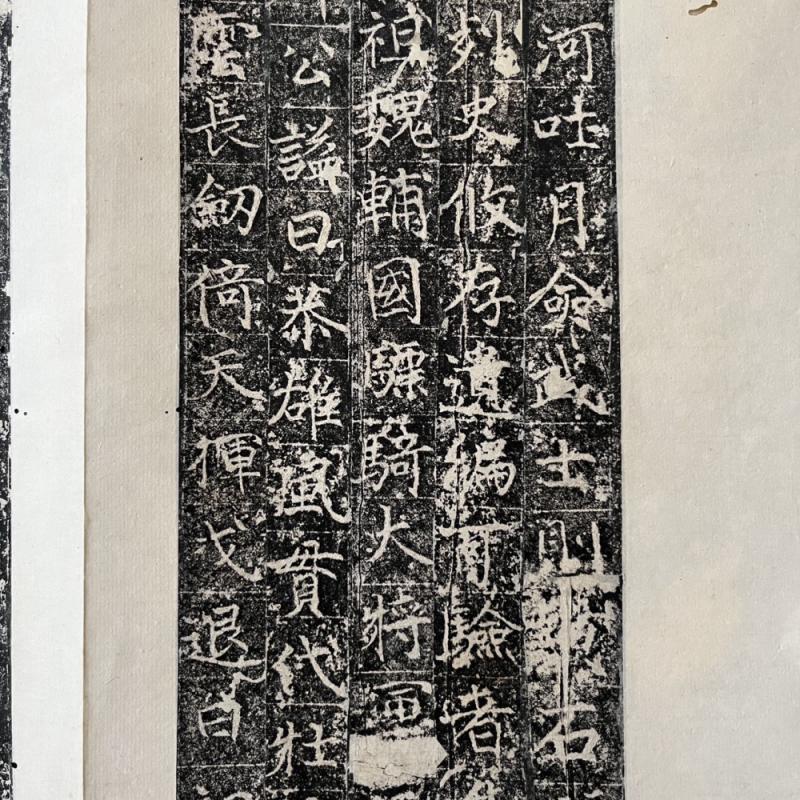 河吐月武士則石
史攸存遺編可驗者
祖魏輔國驃騎大將軍
公諡曰恭雄風貫代壯
雲長釼倚天揮戈退日